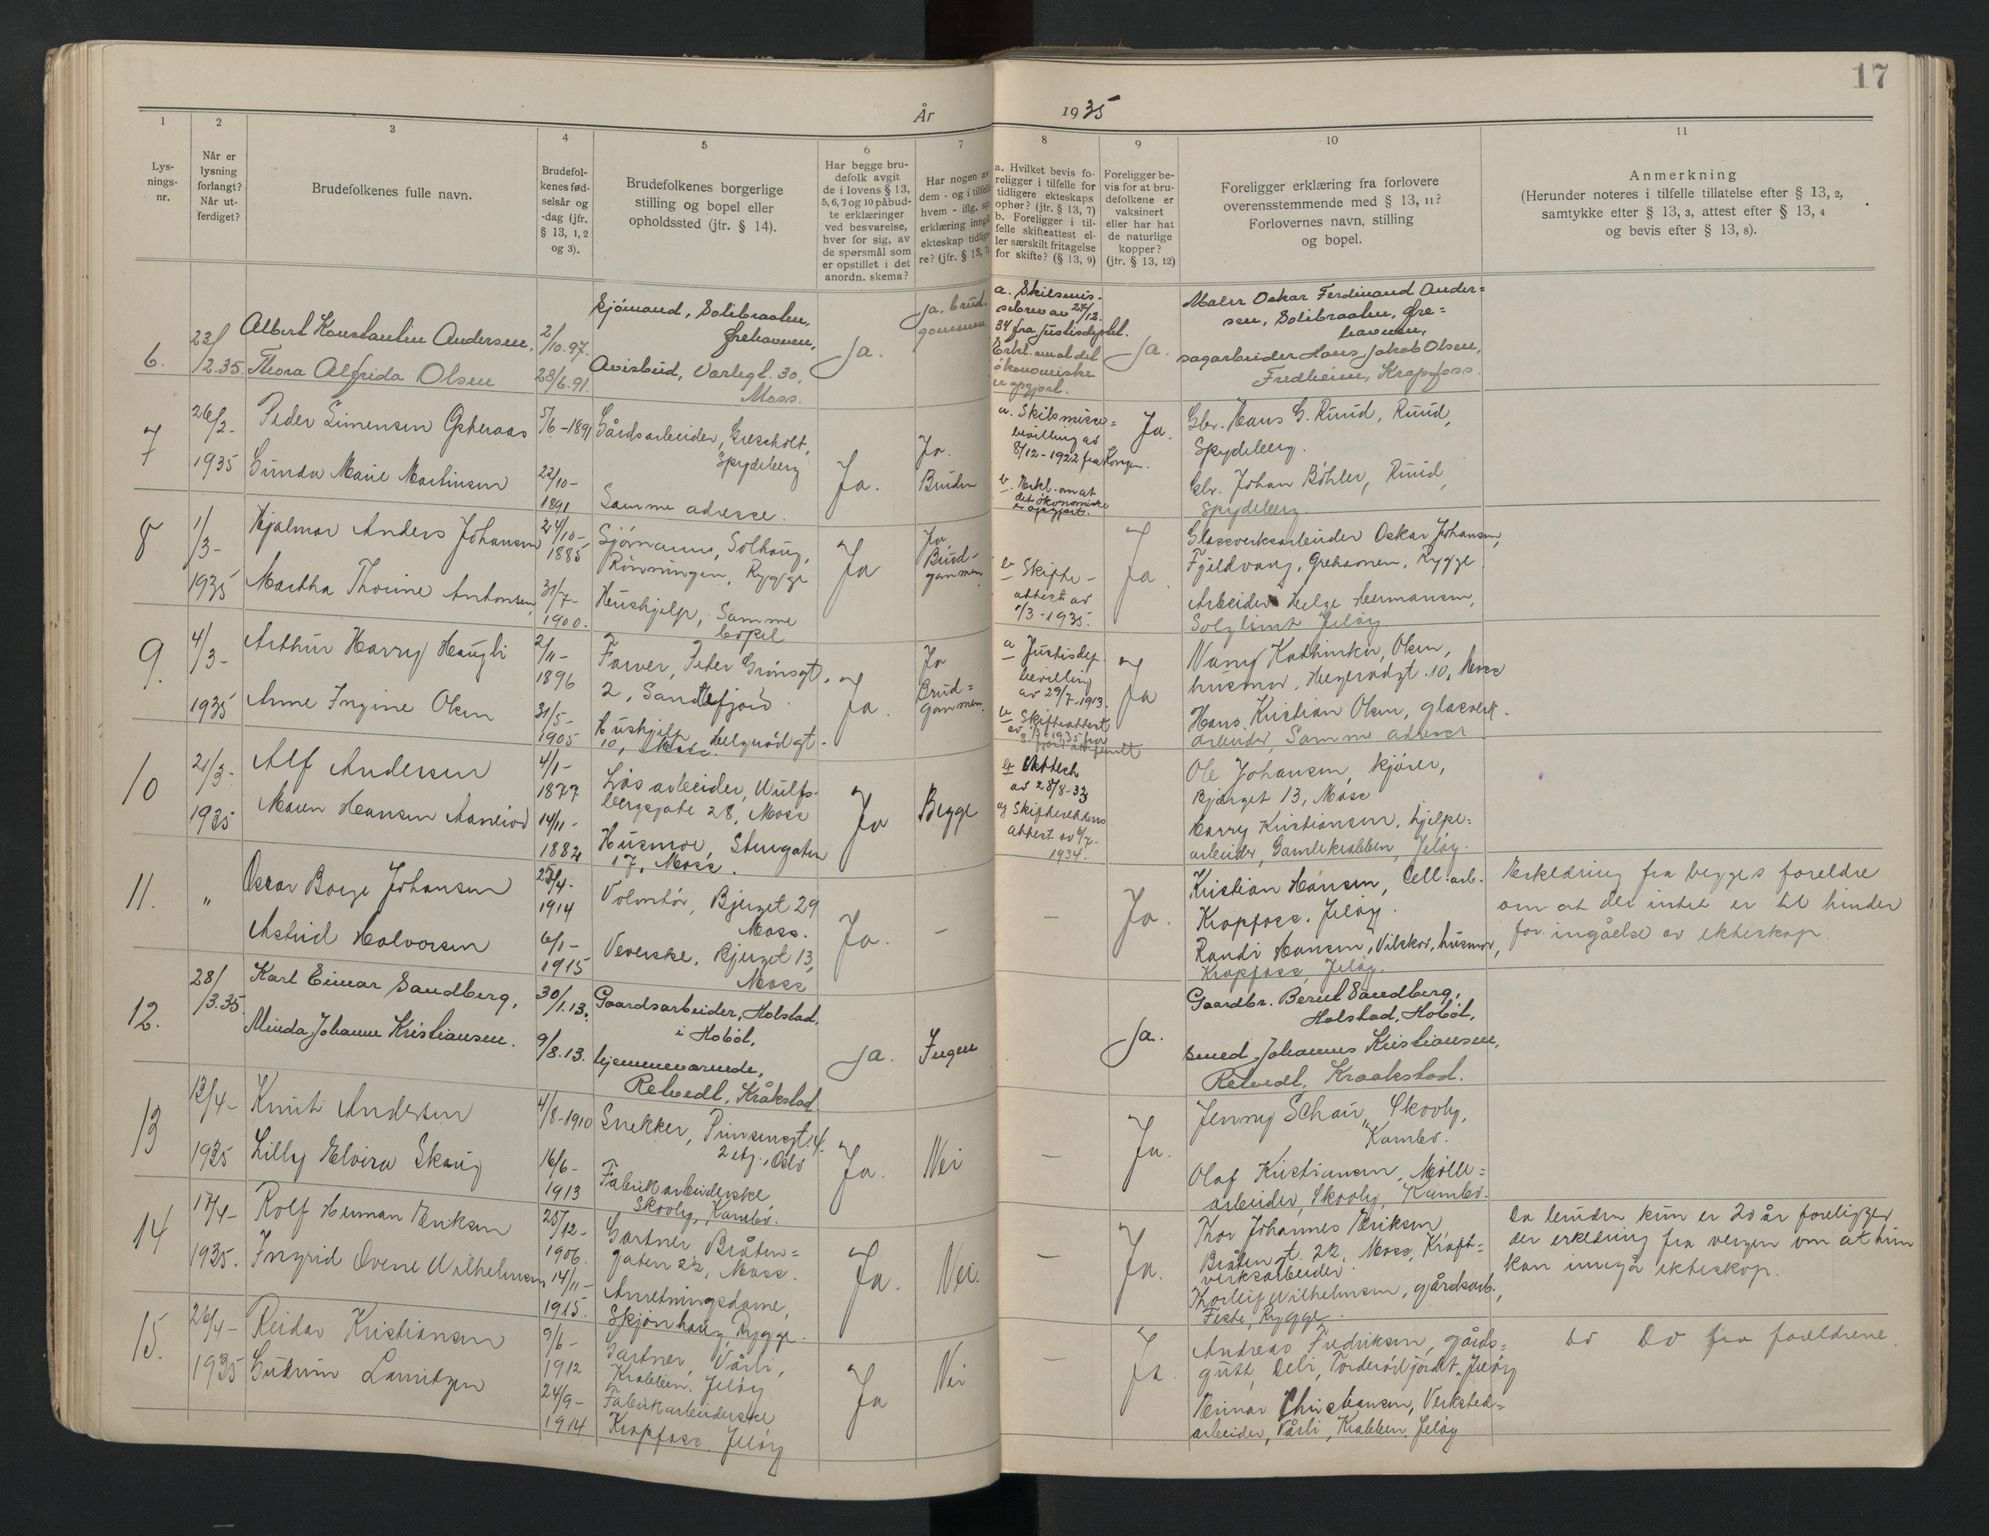 17
År 1935
1 2 3 4 5 6 7 8 9 10 11
Lys-
nings-
nr.
Når er
lysning
forlangt?
Når ut-
ferdiget?
Brudefolkenes fulle navn.
Brudefol-
kenes fød-
selsår og
-dag (jfr.
§ 13, 1, 2
og 3).
Brudefolkenes borgerlige
stilling og bopel eller
opholdssted (jfr. § 14).
Har begge bru-
defolk avgit
de i lovens § 13,
5, 6, 7 og 10 påbud-
te erklæringer
ved besvarelse,
hver for sig, av
de spørsmål som
er opstillet i det
anordn. skema?
Har nogen av
dem - og i tilfelle
hvem - iflg. sin
erklæring inngått
ekteskap tidlige-
re? (jfr. § 13, 7)
a. Hvilket bevis fo-
religger i tilfelle for
tidligere ekteskaps
ophør? (jfr. § 13, 7)
b. Foreligger i til-
felle skifteattest el-
ler særskilt fritagelse
for skifte? (§ 13, 9)
Foreligger be-
vis for at bru-
defolkene er
vaksinert
eller har hat
de naturlige
kopper?
(jfr. § 13, 12)
Foreligger erklæring fra forlovere
overensstemmende med § 13, 11?
Forlovernes navn, stilling
og bopel.
Anmerkning
(Herunder noteres i tilfelle tillatelse efter § 13, 2,
samtykke efter § 13, 3, attest efter § 13, 4
og bevis efter § 13, 8).
6.
23/
12.35.
Albert Konstantin Andersen,
Thora Alfrida Olsen
2/
10.97.
28/6.91.
Sjömand, Solibraaten,
Ørehavnen,
Avisbud, Varlegt. 30,
Moss.
Ja.
Ja, brud-
gommen
a. Skilsmis-
sebrev av 27/12.
34 fra Justisdeptet.
Erkl. om at det
økonomiske
er opgjort.
Ja.
Maler Oskar Ferdinand Ander-
sen, Solibraaten, Øre-
havnen,
sagarbeider Hans Jakob Olsen,
Fredheim, Krapfoss.
7
26/2-
1935
Peder Simensen Opheraas
Gunda Marie Martinsen
5/6-1891
22/10-
1891
Gårdsarbeider, Gresholt,
Spydeberg
Samme adresse.
Ja.
Ja.
Bruden
a. Skilsmisse-
bevilling av
8/12-1922 fra Kongen.
b. Erkl. om at
det økonomiske
er opgjort.
Ja.
Gbr. Hans G. Ruud, Ruud,
Spydeberg.
Gbr. Johan Böhler, Ruud,
Spydeberg.
8
1/3-
1935
Hjalmar Anders Johansen
Martha Thorine Antonsen,
24/10-
1885
31/7-
1900.
Sjømann, Solhaug,
Rönningen, Rygge
Hushjelp, Samme
bopel
Ja
Ja
Brud-
gommen
b Skifte-
attest av
1/3-1935.
Ja.
Glassverksarbeider Oskar Johansen,
Fjeldvang, Ørehavnen, Rygge
Arbeider Helge Hermansen,
Solglimt Jeløy.
9.
4/3-
1935
Arthur Harry Haugli
Anne Ingine Olsen
2/11-
1896
31/5-
1905
Farver, Peter Grönsgt.
2, Sandefjord.
Hushjelp, Helgerødgt.
10, Moss.
Ja.
Ja
Brud-
gommen.
a Justisdep
bevilling
av 29/7-1913.
b Skifteattest
Ja
Nanny Kathinka Olsen,
husmor, Helgerødgt. 10, Moss
Hans Kristian Olsen, glasverk-
arbeider, Samme adresse
10
21/3-
1935
Alf Andersen
Maren Hansen Aaneiod
4/1-
1877
14/11-
1882
Løsarbeider, Wulfs-
bergsgate 28, Moss
Husmor, Stengaten
17, Moss.
Ja
Begge
av 28/8-33
og Skifterettens
attest av 6/7-
1934.
Ole Johansen, kjører,
Bjerget 13, Moss
Harry Kristiansen, hjelpe-
arbeider, Gamlekrabben, Jeløy.
11.
"
Oscar Borge Johansen
Astrid Halvorsen
23/4-
1914
6/1-
1915
Volontør, Bjerget 29
Moss.
Veverske, Bjerget 13,
Moss
Ja.
-
-
Ja.
Kristian Hansen, Cell.arb.
Krapfoss. Jeløy.
Randi Hansen, Vilskov, husmor,
Krapfoss, Jeløy.
Erklæring fra begges foreldre
om at der intet er til hinder
for ingåelse av ekteskap.
12.
28/
3.35.
Karl Einar Sandberg,
Minda Johanne Kristiansen.
30/
1.13.
9/
8.13.
Gaardsarbeider, Holstad,
i Hobøl,
hjemmeværende,
Retvedt, Kråkstad.
Ja.
Ingen
-
Ja.
Gaardbr. Bernt Sandberg,
Holstad, Hobøl,
smed Johannes Kristiansen,
Retvedt, Kraakstad.
13
12/4-
1935
Knut Andersen
Lilly Elvira Skaug
4/8-1910
16/6-
1913
Snekker, Pinsengt. 4.
2 etg., Oslo
Fabrikarbeiderske
Skovly, Kambo.
Ja.
Nei
-
Ja.
Jenny Schau, Skovly,
Kambo.
Olaf Kristiansen, Mølle-
arbeider, Skovly, Kambo.
14
17/4-
1935.
Rolf Herman Eriksen
Ingrid Ovene Wilhelmsen
25/12-
1906.
14/11-
1915.
Gartner, Bråten-
gaten 22, Moss.
Anretningsdame,
Skjønhaug, Rygge.
Ja.
Nei.
-
Ja.
Thor Johannes Eriksen
Bråtengt. 22, Moss, Kraft-
verksarbeider.
Thorleif Wilhelmsen, gårdsarb.,
Feste, Rygge.
Da bruden kun er 20 år foreligger
der erklæring fra vergen om at hun
kan inngå ekteskap.
15.
26/4-
1935
Reidar Kristiansen
Gudrun Lauritzen
9/6-
1912
24/9-
1914
Gartner, Vårli,
Krabben. Jeløy
Fabrikarbeiderske
Krapfoss. Jeløy
Ja
Nei
-
Ja.
Andreas Fredriksen, gårds-
gutt, Deli, Torderødjordet, Jeløy
Einar Christiansen, Verksted-
arbeider, Vårli, Krabben. Jeløy
Do Do fra foreldrene